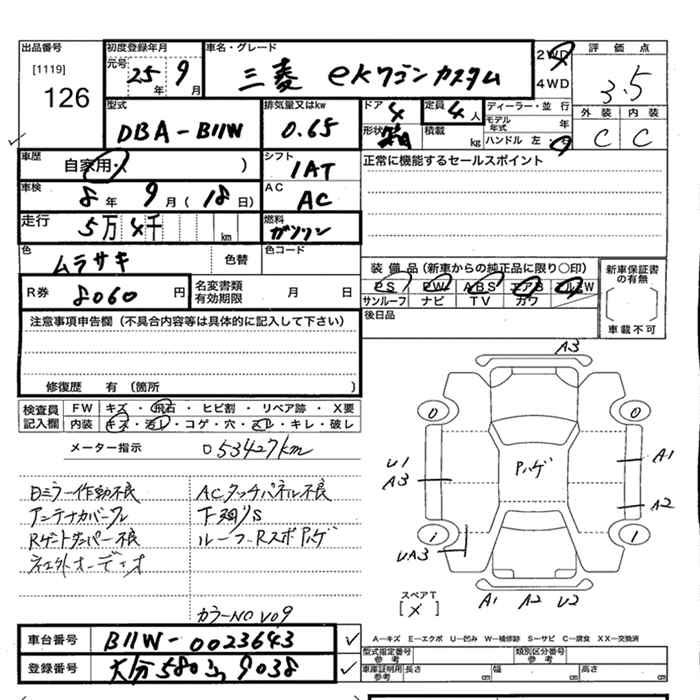 出品番号 初度登録年月 車名・グレード 評価点
[1119] 126
元号 25年 9月
三菱 eKワゴン カスタム
2WD 4WD
3.5
外装 内装
C C
型式 排気量又はkw ドア 4 定員 4人 ディーラー・並行
DBA-B11W 0.65 形状 積載 kg モデル年式 年
ハンドル 左・右
車歴 自家用・( ) シフト 1AT 正常に機能するセールスポイント
車検 8年 9月(18日) AC AC
走行 5万4千 km 燃料 ガソリン
色 ムラサキ 色替 色コード
装備品(新車からの純正品に限り○印) 新車保証書の有無
R券 8060円 名変書類有効期限 月 日
PS PW ABS エアB アルミW
サンルーフ ナビ TV カワ
[ ] 車載不可
注意事項申告欄(不具合内容等は具体的に記入して下さい) 後日品
修復歴 有(箇所 )
検査員記入欄 FW キズ・飛石・ヒビ割・リペア跡・X要
内装 キズ・汚レ・コゲ・穴・スレ・キレ・破レ
メーター指示 53427km
A3
0 0
U1 A3 パゲ A1
A2
UA3 1 1
A1 A2 U2
Dミラー作動不良 ACタッチパネル不良
アンテナカバー 下廻りS
Rゲートダンパー不良 ルーフ-Rスポハゲ
社外オーディオ
カラーNO V09
スペアT
[×]
車台番号 B11W-0023643
A—キズ E—エクボ U—凹み W—補修跡 S—サビ C—腐食 XX—交換済
登録番号 大分 580 9038
型式指定番号 参考 類別区分番号 参考
車庫証明用 参考 長さ cm 幅 cm 高さ cm